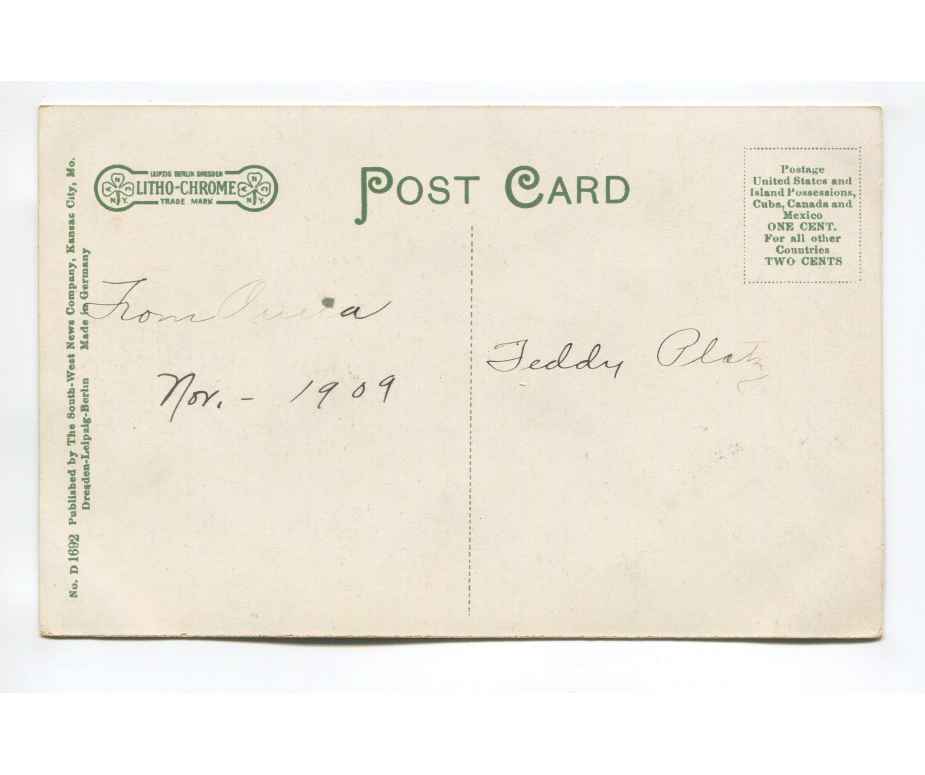 No. D 1692 Published by The South-West News Company, Kansas City, Mo.
Dresden-Leipzig-Berlin Made in Germany
LEIPZIG BERLIN DRESDEN
LITHO-CHROME
TRADE MARK
N N N.Y.
N N N.Y.
POST CARD
Postage
United States and
Island Possessions,
Cuba, Canada and
Mexico
ONE CENT.
For all other
Countries
TWO CENTS
From
Nov. - 1909
Teddy